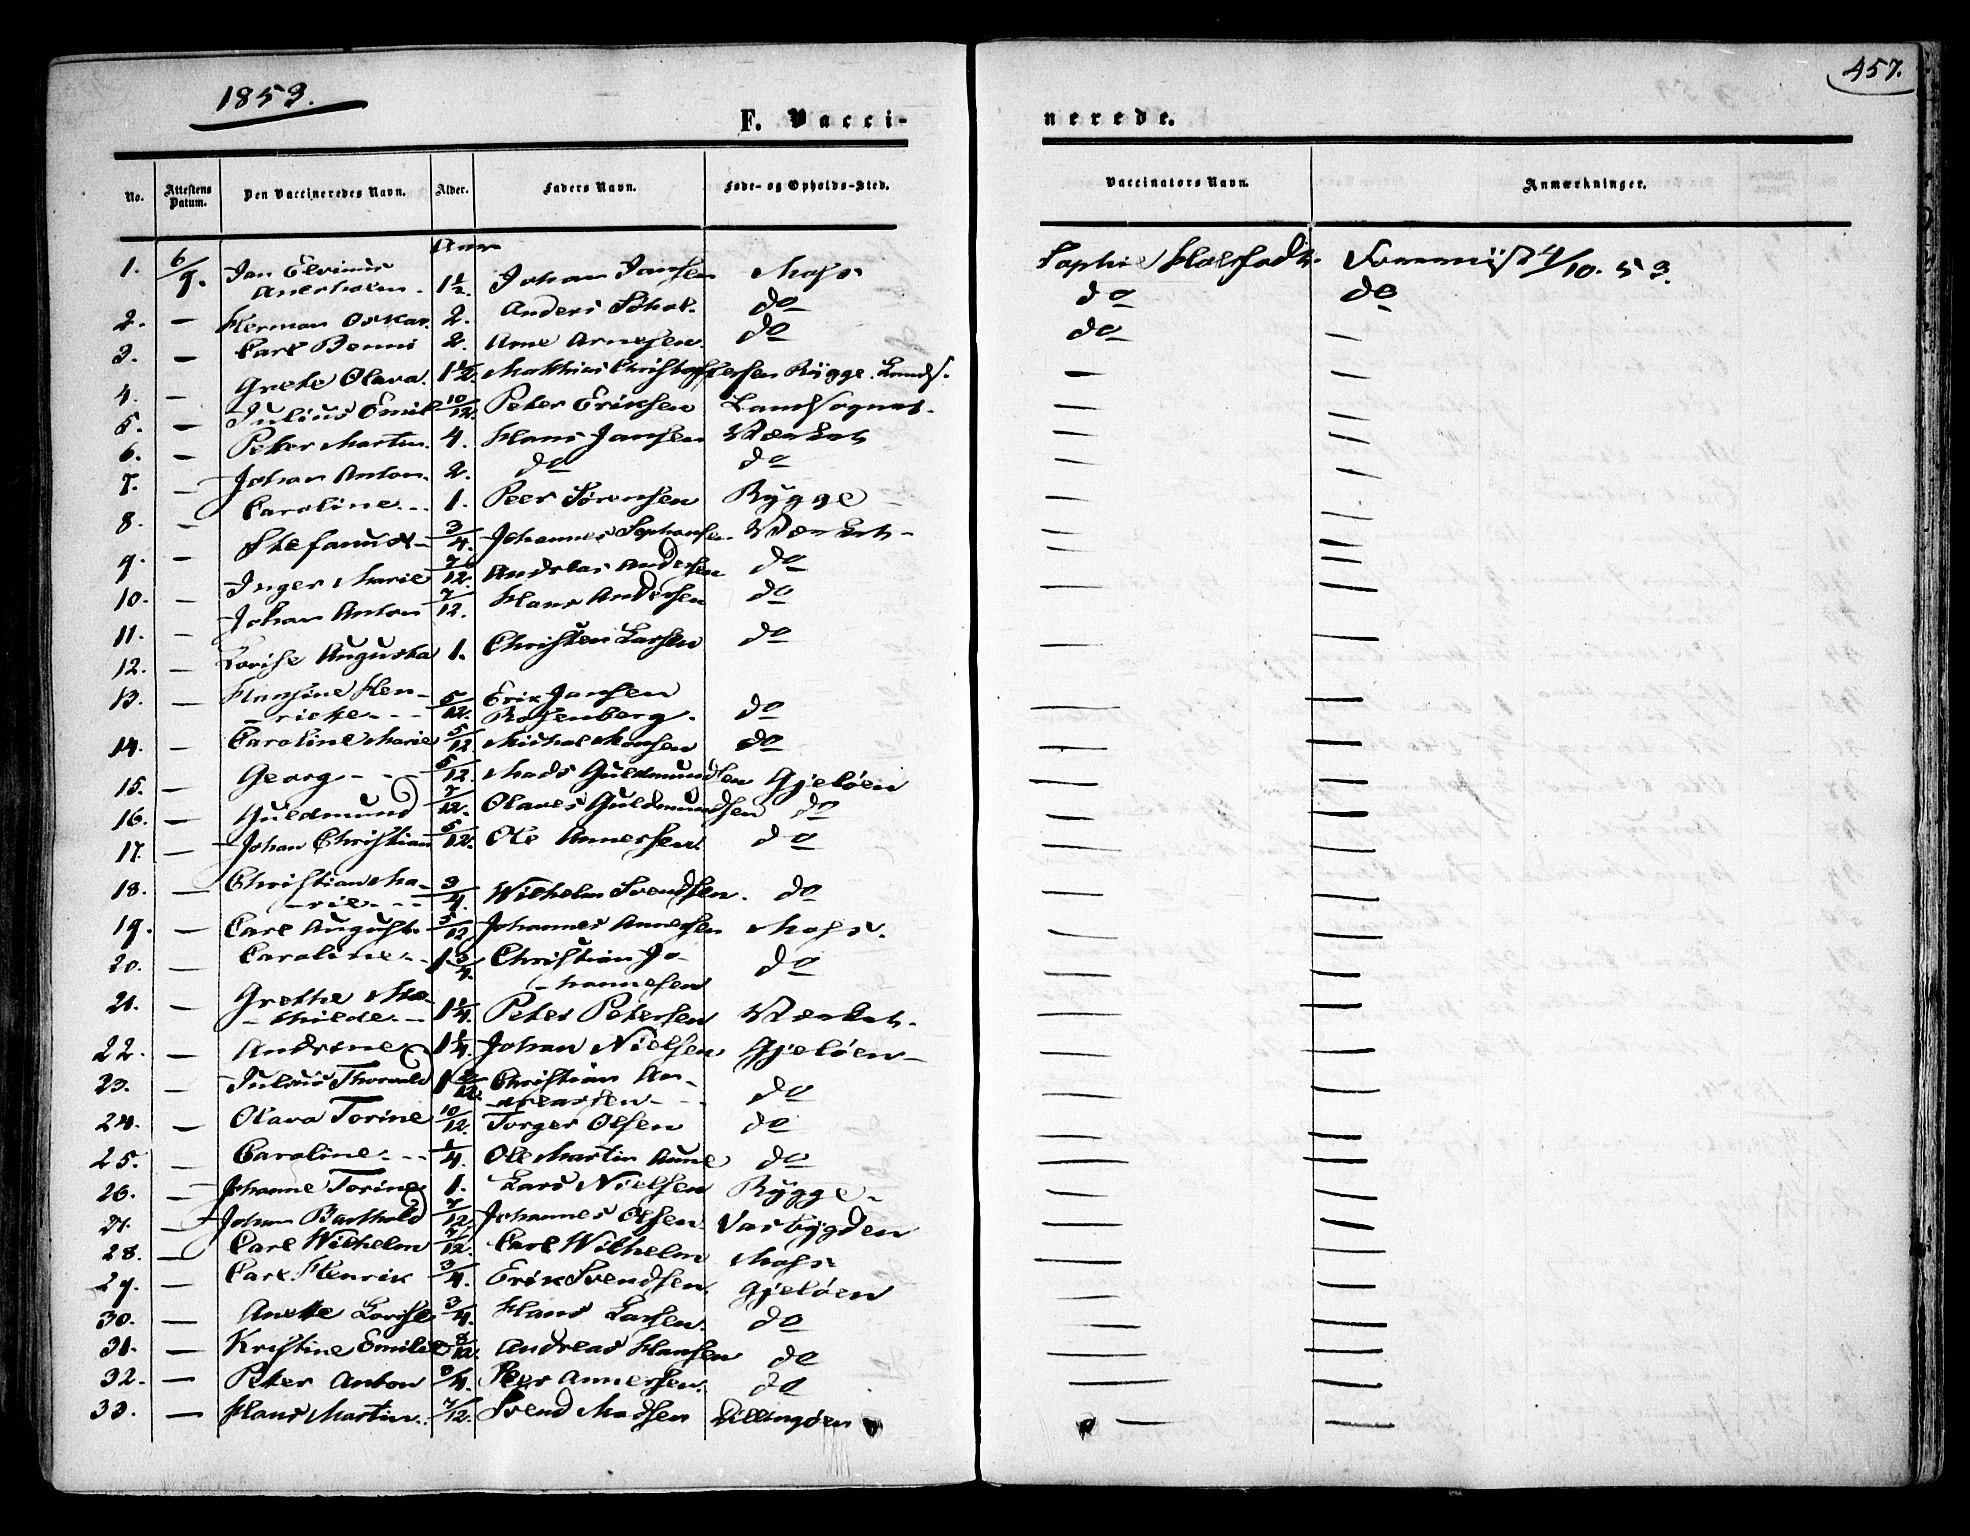 1853.
457.
F. Vacci-
nerede.
No. Attestens Datum. Den Vaccineredes Navn. Alder. Faders Navn. Føde- og Opholds-Sted. Vaccinators Navn. Anmærkninger.
1. 6/9. Jan Johan Jansen 1 1/2 Moss Sophie 4/10. 53.
2. — Herman Oskar. 2. Anders do do do
3. — Carl Benni 2. Arne Arnesen. do do —
4. — Grete Olava. 1 1/2. Matthias Christoffersen Rÿgge. Lands. — —
5. — Julius Emil 10/12. Peter Eriksen Landsognet. — —
6. — Peter Martin. 4. Hans Jansen Værket — —
7. — Johan Anton. 2. do do — —
8. — Caroline 1. Peer Sørensen Rÿgge — —
9. — Stefanus — 3/4. Johannes Verket — —
10. — Inger Marie 7/12. Andreas Andersen do — —
11. — Johan Anton 7/12. Hans Andersen do — —
12. — Lovise Augusta 1. Christen Larsen do — —
13. — Hansine Hen-
ricke 5/12. Erik Jansen
Rosenberg. do — —
14. — Caroline Marie 5/12 Michel Monsen do — —
15. — Georg 5/12 Mads Guldmundsen Gjeløen — —
16. — Guldmund 7/12. Olaves Guldmundsen do — —
17. — Johan Christian 5/12. Ole Annersen. do — —
18. — Christian Ma-
rie 3/4. Wilhelm Svendsen. do — —
19. — Carl August. 5/12 Johannes Annersen Moss. — —
20. — Caroline 1 3/4. Christian Jo-
hannesen do — —
21. — Grethe Ma-
thilde 1 1/4. Peter Petersen Værket. — —
22. — Andrine 1 1/4. Johan Nielsen Gjeløen — — —
23. — Julius Thorvald Christian An-
dreassen do — —
24. — Olava Torine 10/12. Torger Olsen do — —
25. — Caroline. 1/4. Ole Martin do — —
26. — Johanne Torine 1. Lars Nielsen Rÿgge — — —
27. — Johan Barthold 7/12. Johannes Olsen Varbÿgden — —
28. — Carl Wilhelm 7/12. Carl Wilhelm Moss — —
29. — Carl Henrik 3/4. Erik Svendsen. Gjeløen — —
30. — Anette Lovise 3/4. Hans Larsen. do — —
31. — Kristine Emilie 8/12. Andreas Hansen do — —
32. — Peter Anton 3/4. Peer Annersen. do — —
33. — Hans Martin. 7/12. Svend Madsen Dillingøen — —